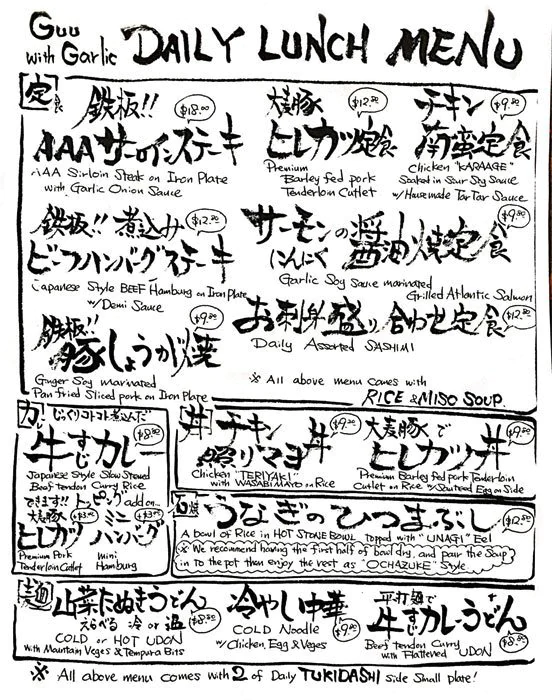 Guu
with Garlic
DAILY LUNCH MENU
定食
鉄板!! $18.00
AAA サーロインステーキ
AAA Sirloin Steak on Iron Plate
with Garlic Onion Sauce
大麦豚 $12.50
ヒレカツ定食
Premium
Barley fed pork
Tenderloin Cutlet
チキン $9.50
南蛮定食
Chicken "KARAAGE"
Soaked in Sour Soy Sauce
w/ Housemade Tar Tar Sauce
鉄板!! 煮込み $12.50
ビーフハンバーグステーキ
Japanese Style BEEF Hamburg on Iron Plate
w/ Demi Sauce
サーモンの
にんにく
醤油焼定食 $9.50
Garlic Soy Sauce marinated
Grilled Atlantic Salmon
鉄板!! $9.50
豚しょうが焼
Ginger Soy marinated
Pan fried Sliced pork on Iron Plate
お刺身盛り合わせ定食 $12.50
Daily Assorted SASHIMI
※ All above menu comes with
RICE & MISO SOUP.
カレー
じっくりコトコト煮込んだ
牛すじカレー $8.50
Japanese Style Slow Stewed
Beef tendon Curry Rice
できます!! トッピング add on...
大麦豚
ヒレカツ
Premium Pork
Tenderloin Cutlet
ミニ
ハンバーグ
mini
Hamburg
丼
チキン $9.50
照りマヨ丼
Chicken "TERIYAKI"
with WASABI MAYO on Rice
大麦豚で $9.50
ヒレカツ丼
Premium Barley fed pork Tenderloin
Cutlet on Rice w/ Sauteed Egg on Side
石焼
うなぎのひつまぶし $12.50
A bowl of Rice in HOT STONE BOWL topped with "UNAGI" Eel
※ We recommend having the first half of bowl dry, and pour the Soup
in to the pot then enjoy the rest as "OCHAZUKE" Style.
麺
山菜たぬきうどん
えらべる 冷 or 温 $8.50
COLD or HOT UDON
with Mountain Veges & Tempura Bits
冷やし中華
COLD Noodle $9.50
w/ Chicken, Egg & Veges
平打麺で
牛すじカレーうどん
Beef tendon Curry $8.50
with Flattened UDON
※ All above menu comes with 2 of Daily TUKIDASHI side small plate!